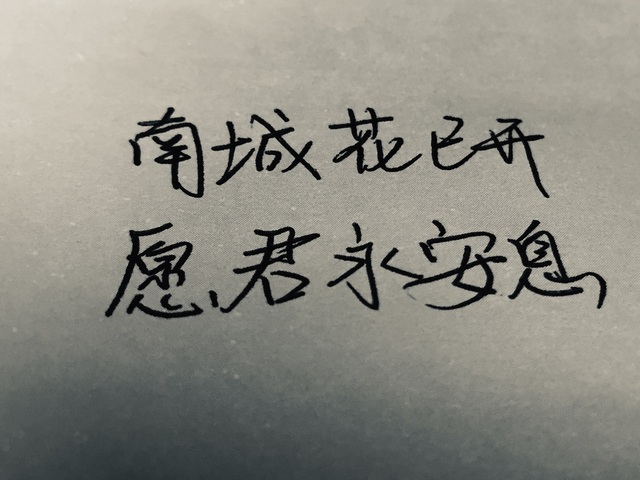 南城花已开
愿君永安息